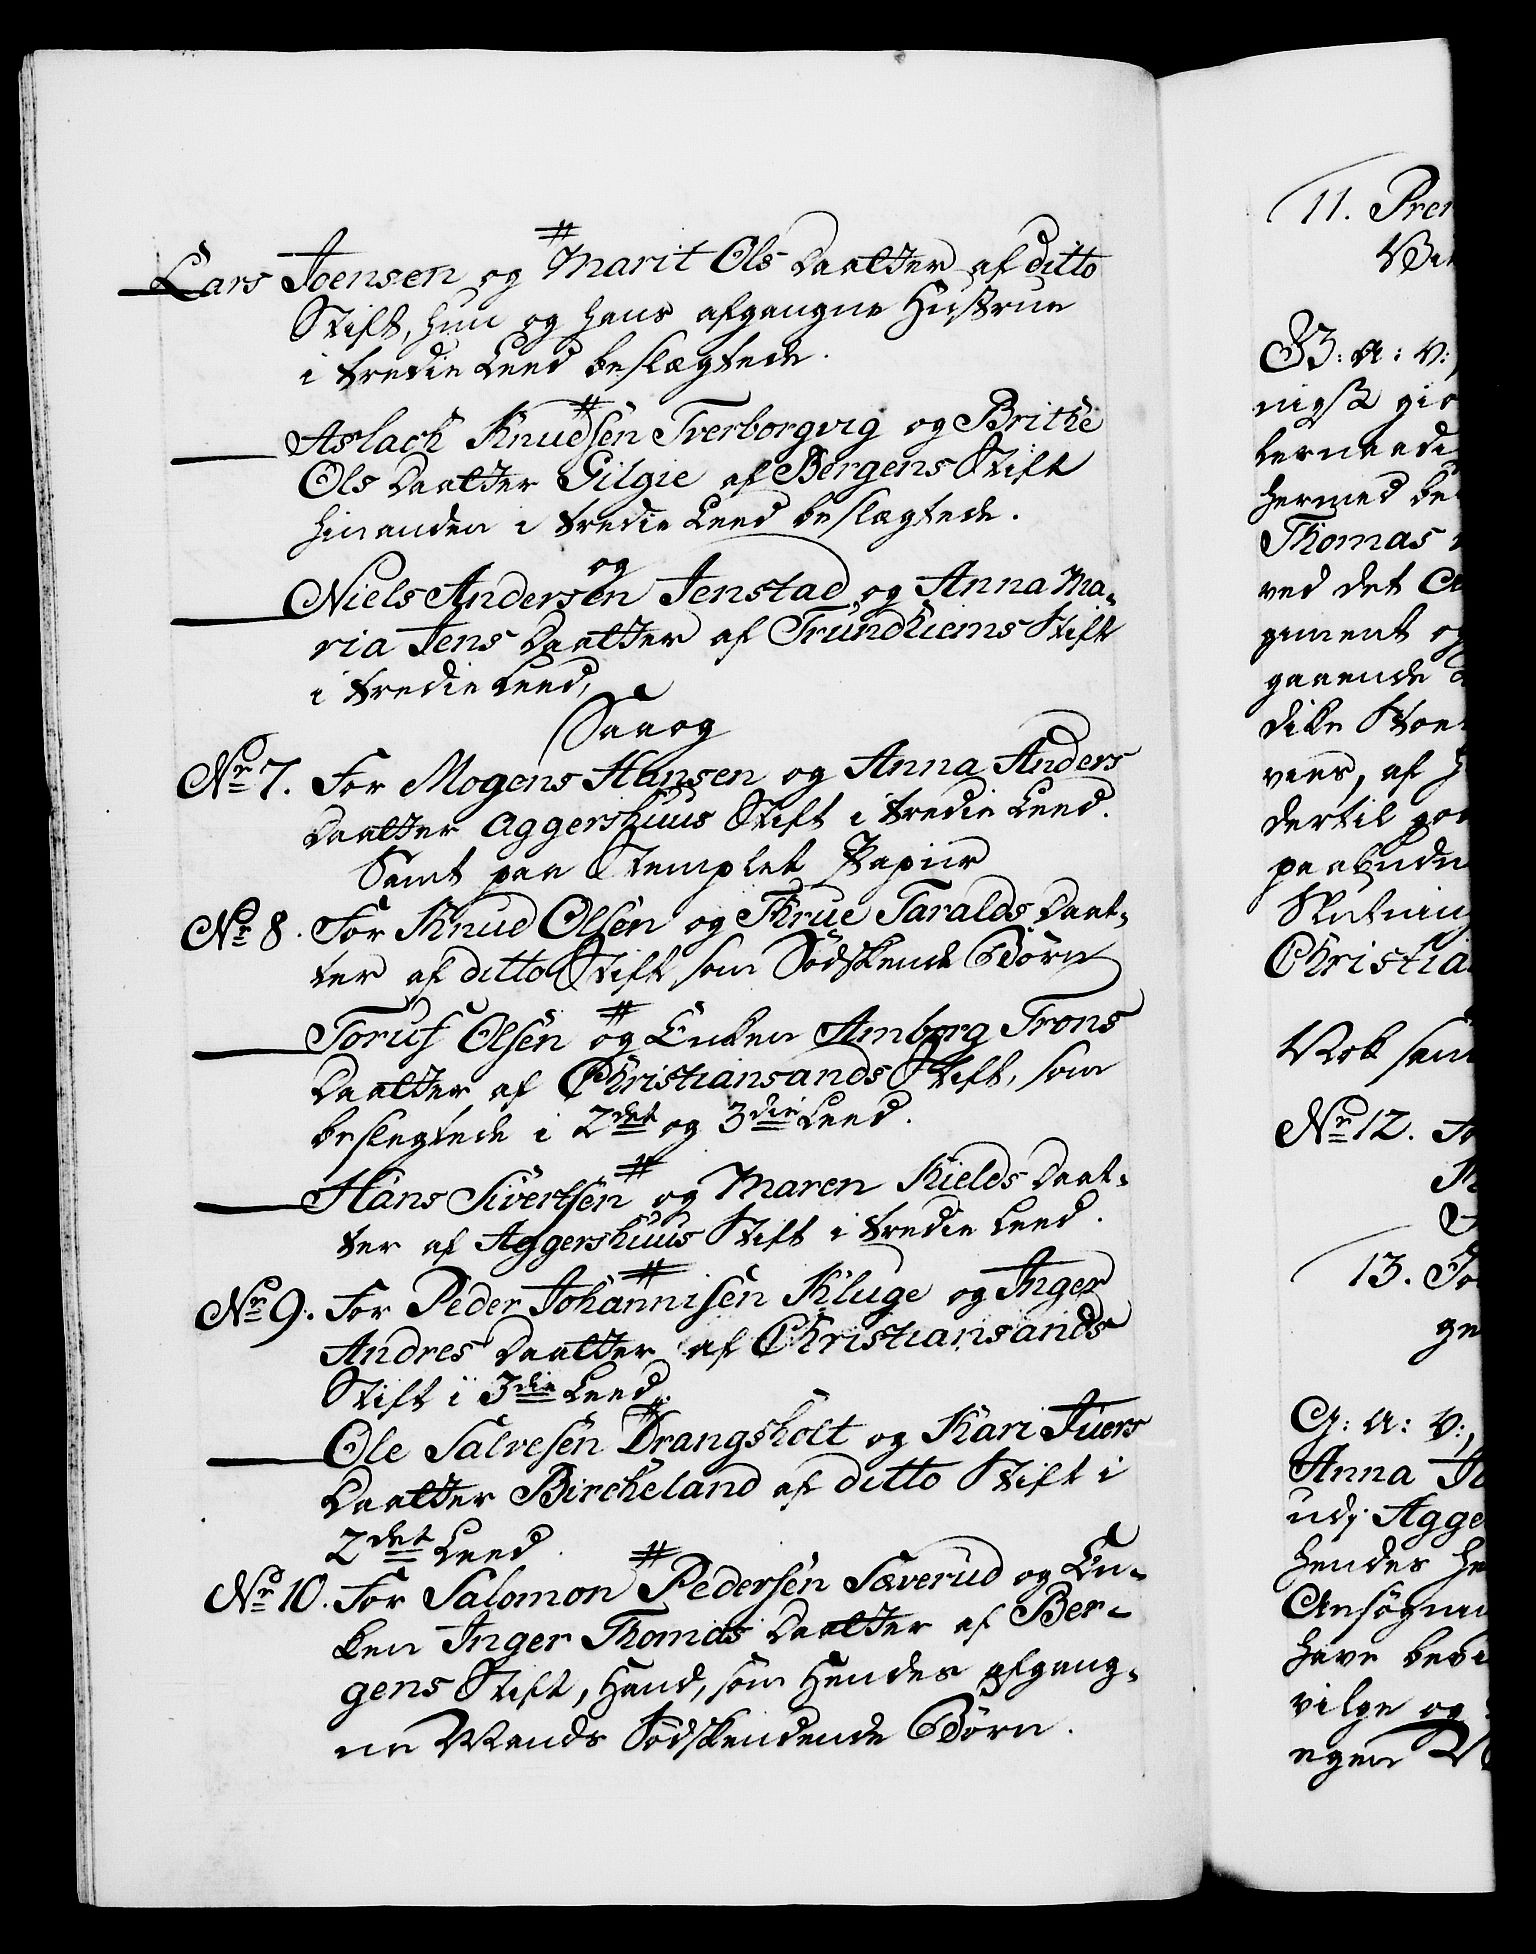 #
Lars Joensen og Marit Ols Daatter af ditto
Stift, hun og hans afgangne Hustrue
i tredie Leed beslægtede.
#
Aslach Knudsen Tverborgvig og Brithe
Ols Daatter Gilgie af Bergens Stift
hinanden i tredie Leed beslægtede.
og
Niels Andersen Jenstad, og Anna Ma-
ria Jens Daatter af Trundhiems Stift
i tredie Leed,
Saaog
No 7. For Mogens Hansen og Anna Anders
Daatter Aggershuus Stift i tredie Leed.
Samt paa Stemplet Papiir
No 8. For Knud Olsen og Thrue Taralds Daat-
ter af ditto Stift som Södskende Börn
#
Toruf Olsen og Enken Amborg Trons
Daatter af Christiansands Stift, som
beslegtede i 2det og 3die Leed.
#
Hans Sivertsen og Maren Kields Daat-
ter af Aggershuus Stift i tredie Leed.
#
No 9. For Peder Johannisen Kluge og Inger
Andres Daatter af Christiansands
Stift i 3die Leed.
#
Ole Salvesen Drangsholt og Kari Juers
Daatter Bircheland af ditto Stift i
2det Leed.
#
No 10. For Salomon Pedersen Sæverud og En-
ken Inger Thomas Daatter af Ber-
gens Stift, Hand, som Hendes afgang-
ne Mands Södskendende Börn.
11. Pre
B: A: V:
nigst gi
hermed be
Thomas
ved det
giment og
gaaende
vers, af
dertil go
Christia
Nok sam
No 12.
13. Fo
ge
G: A: V:,
Anna
udj Agge
hendes he
Ansögni
have be
vilge og
egen